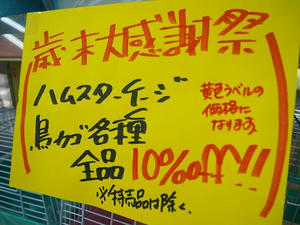 歳末大感謝祭
ハムスターケージ
鳥かご各種
全品10%off!!!
黄色ラベルの
価格に
なります。
※特売品は除く。